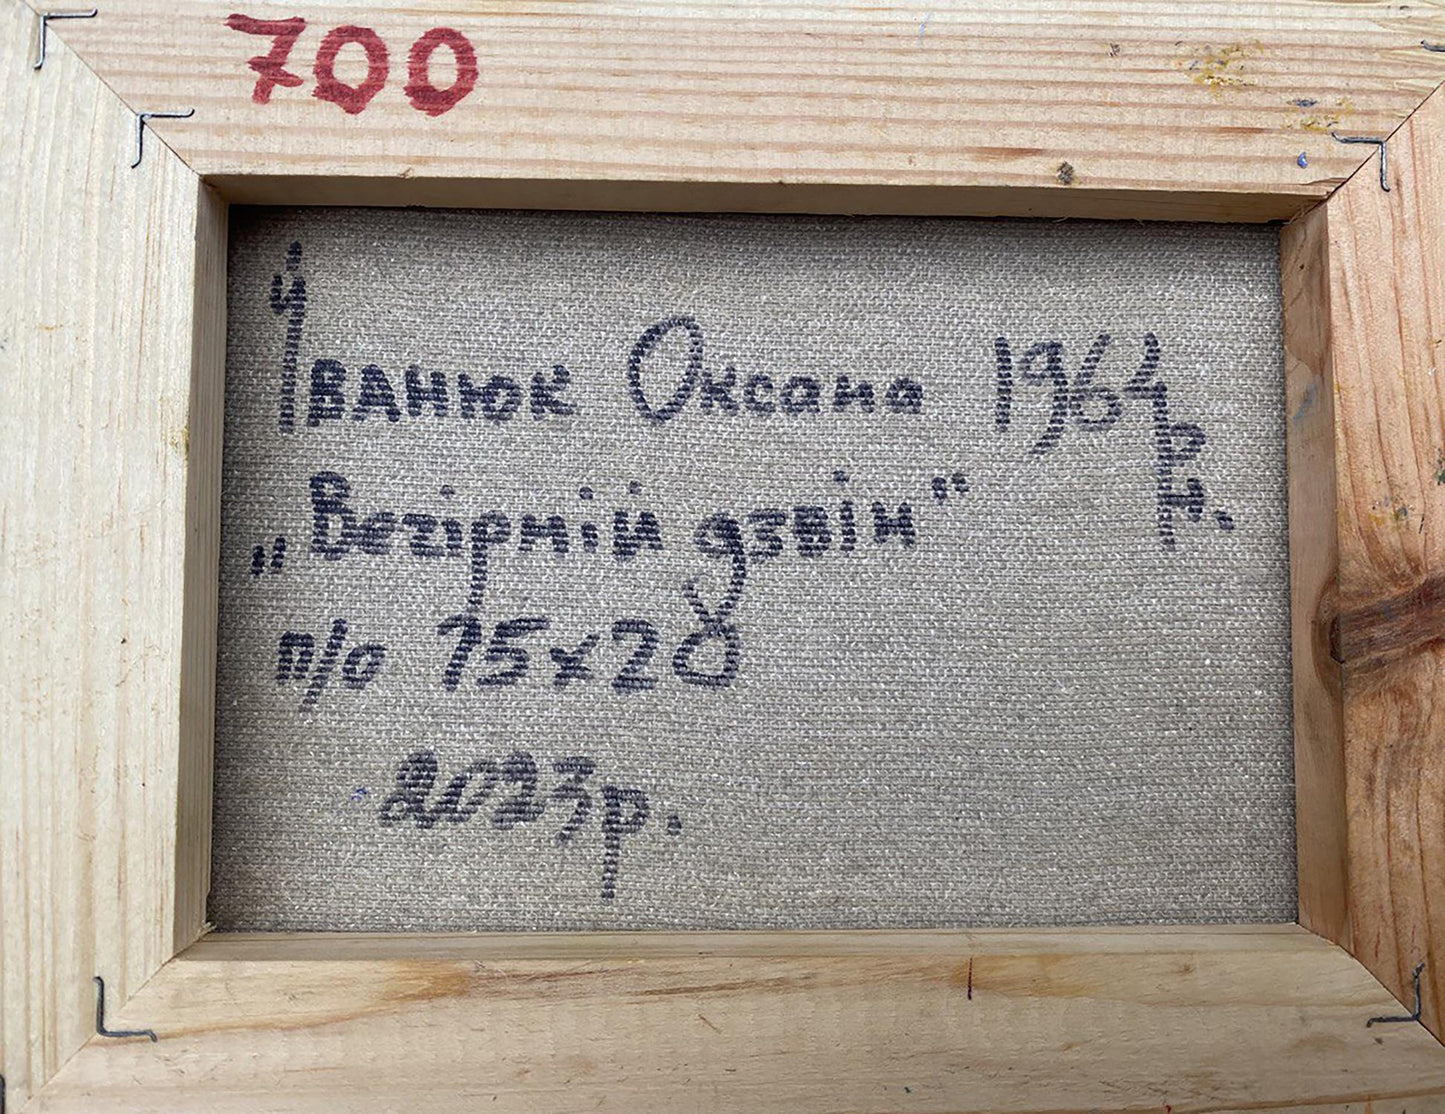 700
Іванюк Оксана 1964 р.н.
„Вечірній дзвін"
п/о 15x20
2023р.